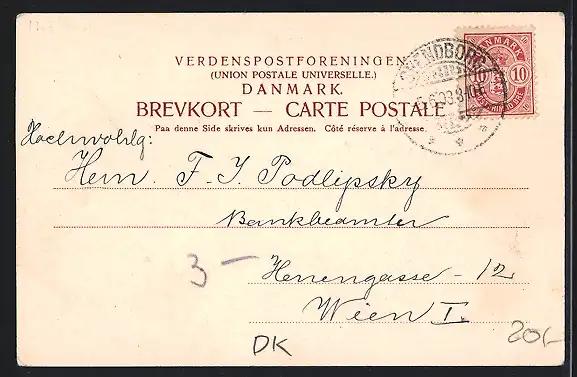 VERDENSPOSTFORENINGEN
(UNION POSTALE UNIVERSELLE.)
DANMARK.
BREVKORT — CARTE POSTALE
Paa denne Side skrives kun Adressen. Côté réserve à l'adresse.
SVENDBORG
DANMARK
10 10
Hochwohlg:
Herrn F. J. Podlipsky
Bankbeamter
3 —
Herrengasse - 12
Wien I.
20,-
DK